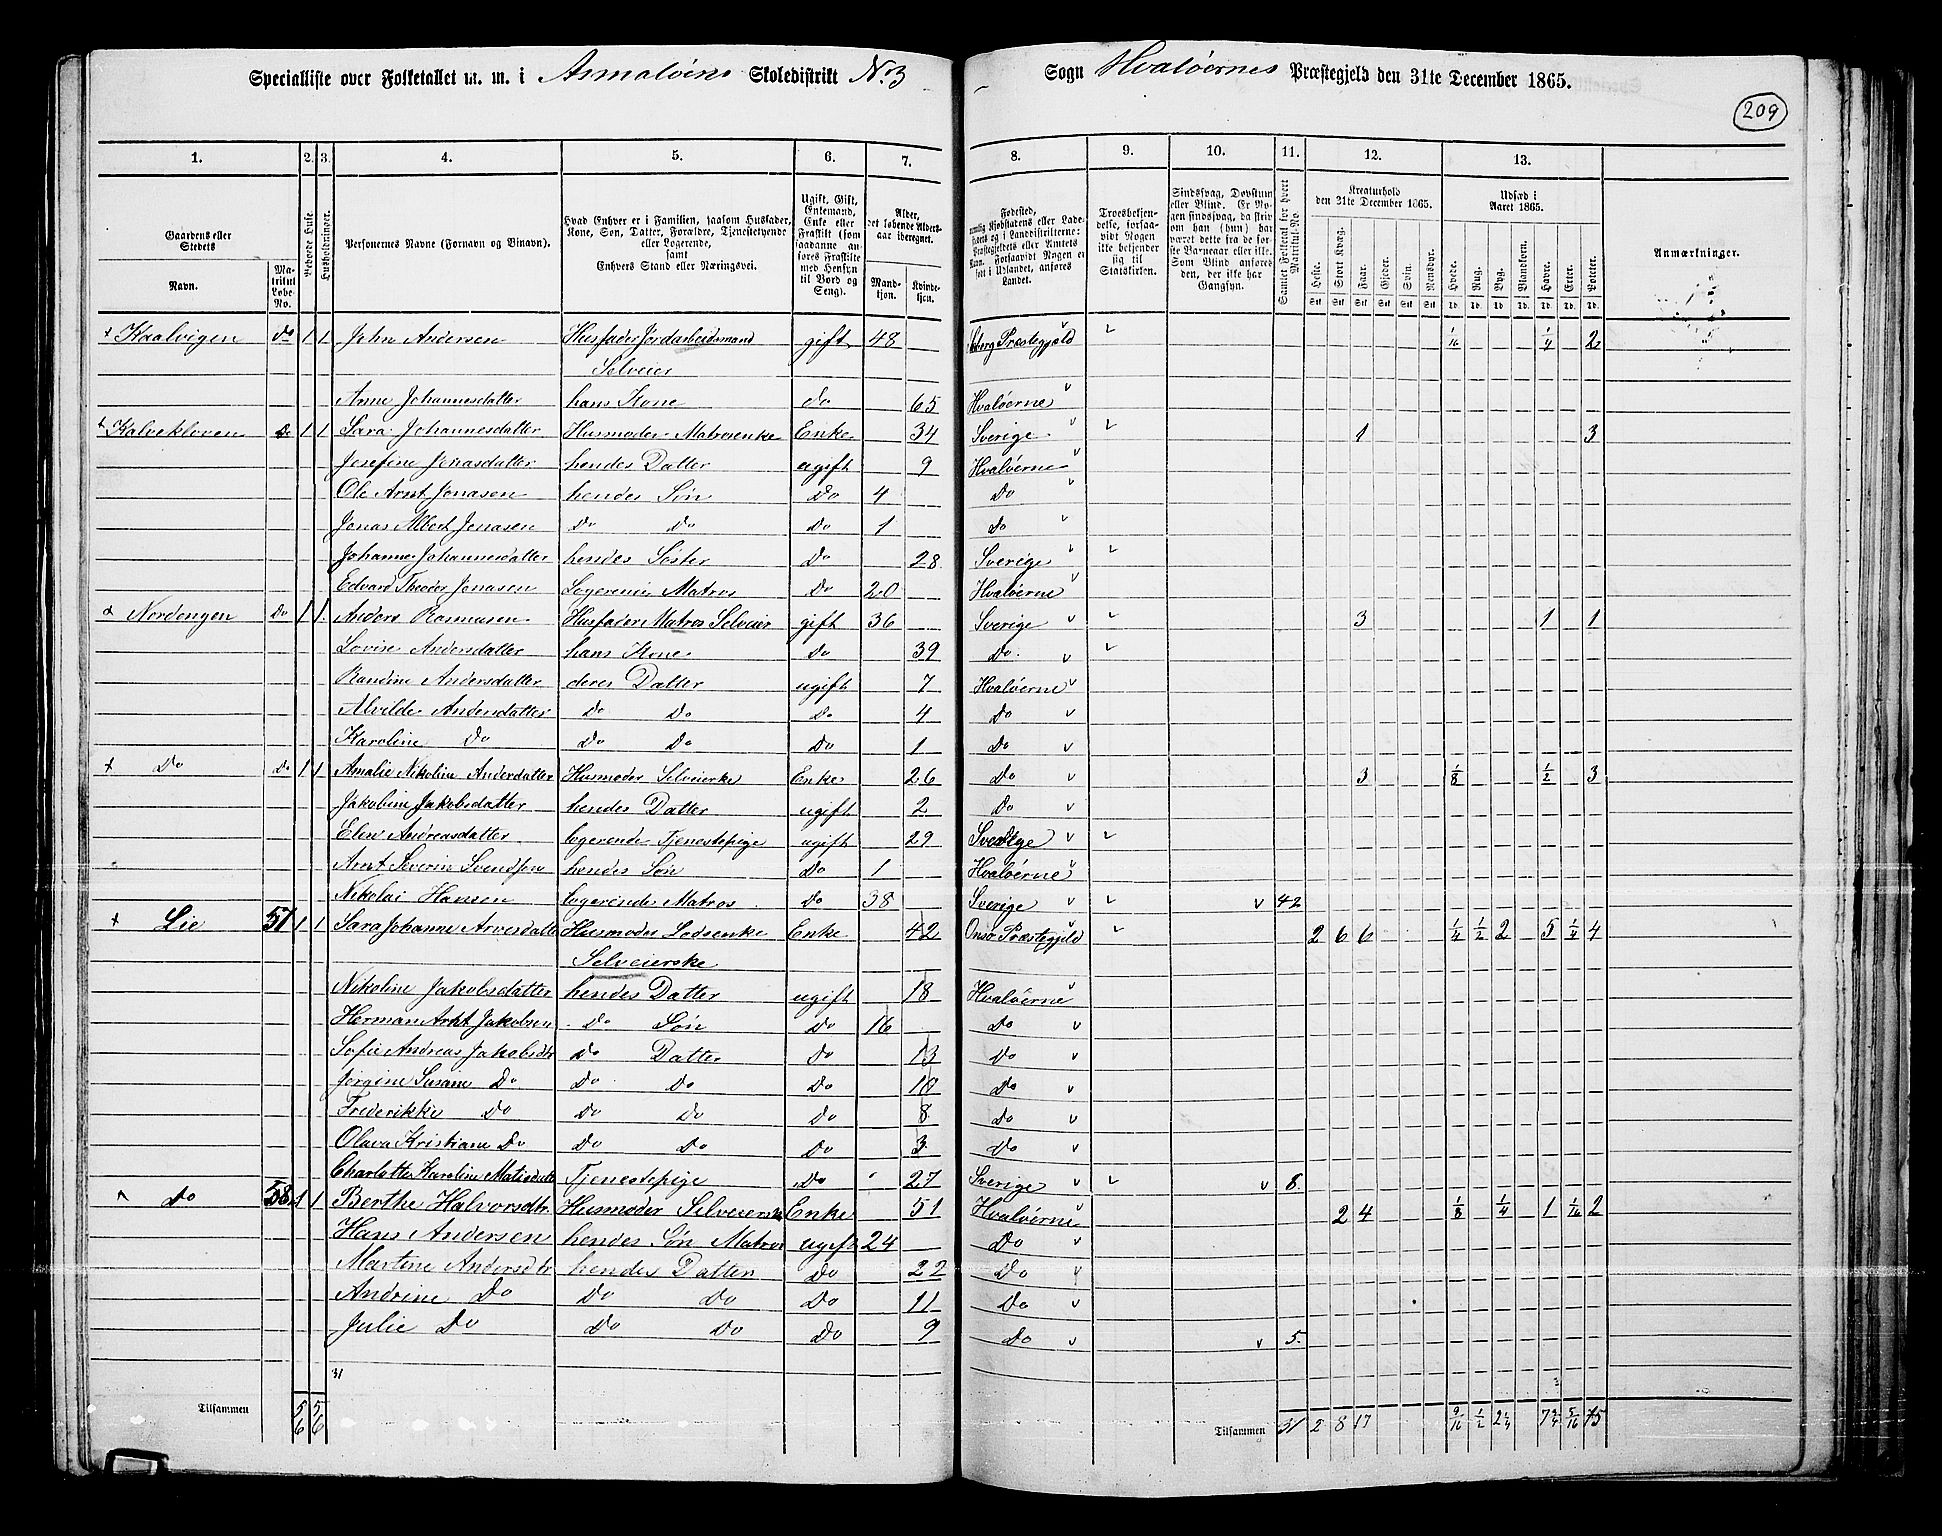 Specialliste over Folketallet m. m. i Asmaløens Skoledistrikt No 3 Sogn Hvaløernes Præstegjeld den 31te December 1865.
209
1. 2. 3. 4. 5. 6. 7. 8. 9. 10. 11. 12. 13.
Gaardens eller Stedets Navn. Matrikul Løbe-No. Beboede Huse. Husholdninger. Personernes Navne (Fornavn og Tilnavn). Hvad Enhver er i Familien, saasom Husfader, Kone, Søn, Datter, Forældre, Tjenestetyende eller Logerende, samt Enhvers Stand eller Næringsvei. Ugift, Gift, Enkemand, Enke eller Fraskilt (som saadanne anføres Fraskilte med Hensyn til Bord og Seng). Alder, det løbende Alders-aar iberegnet. Mandkjøn. Kvindekjøn.
Fødested, Troesbekjendelse, forsaavidt Nogen ikke bekjender sig til Statskirken. Sindssvag, Døvstum eller Blind. Samlet Folketal for hvert Matrikul-No. Kreaturhold den 31te December 1865. Heste. Stort Kvæg. Faar. Gjeder. Svin. Rensdyr. Udsæd i Aaret 1865. Hvede. Rug. Byg. Blandkorn. Havre. Erter. Poteter. Anmærkninger.
+ Kaalvigen Do 1 1 John Andersen Husfader Jordarbeidsmand gift 48 Præstegjeld 1/16 1/4 2
Selveier
Anne Johannesdatter hans Kone do 65 Hvaløerne
+ Kalvekloven Do 1 1 Sara Johannesdatter Husmoder Matrosenke Enke 34 Sverige 1 3
Josefine Jonasdatter hendes Datter ugift 9 Hvaløerne
Ole Arnt Jonasen hendes Søn Do 4 Do
Jonas Albert Jonasen Do Do Do 1 Do
Johanne Johannesdatter hendes Søster Do 28 Sverige
Edvard Theodor Jonasen Logerende Matros Do 20 Hvaløerne
Nordengen Do 1 1 Anders Rasmusen Husfader Matros Selveier gift 36 Sverige 3 1 1
Lovise Andersdatter hans Kone Do 39 Do
Randine Andersdatter deres Datter ugift 7 Hvaløerne
Alvilde Andersdatter Do Do Do 4 Do
Karoline Do Do Do Do 1 Do
+ Do Do 1 1 Amalie Nikoline Andersdatter Husmoder Selveierske Enke 26 Do 3 1/8 1/2 3
Jakobine Jakobsdatter hendes Datter ugift 2 Do
Elen Andreasdatter logerende Tjenestepige ugift 29 Sverige
Arnt Severin Svendsen hendes Søn Do 1 Hvaløerne
Nikolai Hansen logerende Matros Do 38 Sverige 42
+ Lie 57 1 1 Sara Johanne Arvesdatte Husmoder Lodsenke Enke 42 Onsø Præstegjeld 2 6 6 1/4 1/2 2 5 1/4 4
Selveierske
Nikoline Jakobsdatter hendes Datter ugift 18 Hvaløerne
Herman Arnt Jakobsen Do Søn Do 16 Do
Sofie Andreas Jakobsdtr Do Datter Do 13 Do
Jørgine Susane Do Do Do Do 10 Do
Frederikke Do Do Do Do 8 Do
Olava Kristiane Do Do Do Do 3 Do
Charlotte Karoline Tjenestepige Do 27 Sverige 8
Do 58 1 1 Berthe Halvorsdtr. Husmoder Selveierske Enke 51 Hvaløerne 2 4 1/8 1/4 1 1/16 2
Hans Andersen hendes Søn Matros ugift 24 Do
Martine Andersdtr hendes Datter Do 22 Do
Andrine Do Do Do Do 11 Do
Julie Do Do Do Do 9 Do 5
31
Tilsammen 5/6 5/6 Tilsammen 31 2 8 17 9/16 1/2 2 1/4 7 3/4 5/16 15